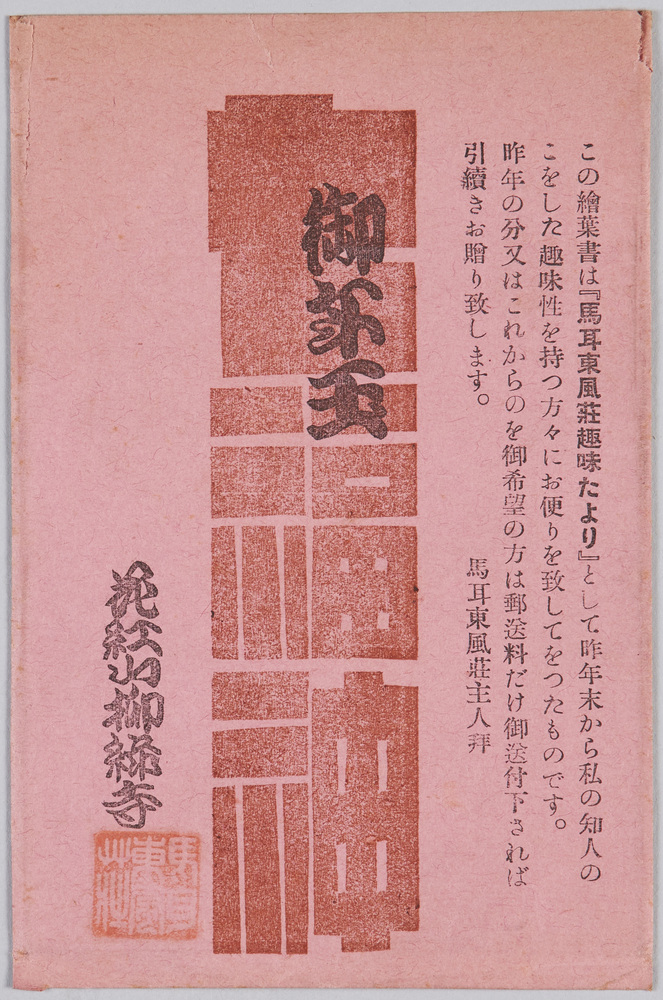 この繪葉書は『馬耳東風莊趣味たより』として昨年末から私の知人の
こをした趣味性を持つ方々にお便りを致してをつたものです。
昨年の分又はこれからのを御希望の方は郵送料だけ御送付下されば
引續きお贈り致します。
馬耳東風莊主人拜
御年玉
花紅山柳綠寺
馬耳東風莊